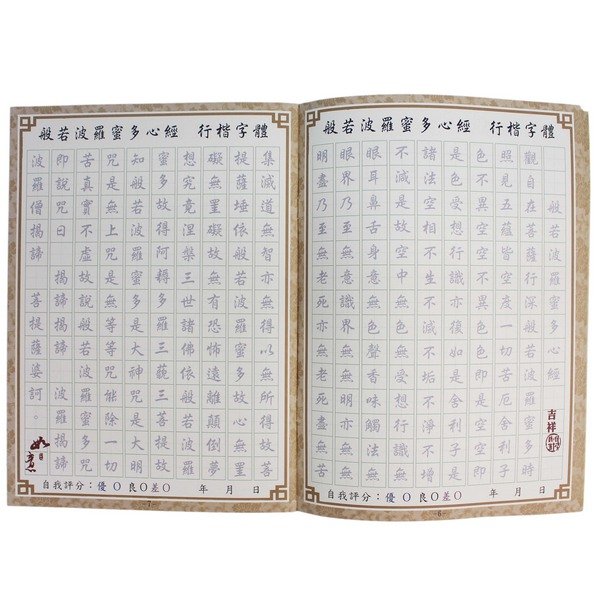 般若波羅蜜多心經 行楷字體
般若波羅蜜多心經
觀自在菩薩行深般若波羅蜜多時
照見五蘊皆空度一切苦厄舍利子
色不異空空不異色色即是空空即
是色受想行識亦復如是舍利子是
諸法空相不生不滅不垢不淨不增
不減是故空中無色無受想行識無
眼耳鼻舌身意無色聲香味觸法無
眼界乃至無意識界無無明亦無無
明盡乃至無老死亦無老死盡無苦
吉祥
自我評分：優○良○差○ 年 月 日
-6-
般若波羅蜜多心經 行楷字體
集滅道無智亦無得以無所得故菩
提薩埵依般若波羅蜜多故心無罣
礙無罣礙故無有恐怖遠離顛倒夢
想究竟涅槃三世諸佛依般若波羅
蜜多故得阿耨多羅三藐三菩提故
知般若波羅蜜多是大神咒是大明
咒是無上咒是無等等咒能除一切
苦真實不虛故說般若波羅蜜多咒
即說咒曰 揭諦揭諦 波羅揭諦
波羅僧揭諦 菩提薩婆訶。
如意
自我評分：優○良○差○ 年 月 日
-7-